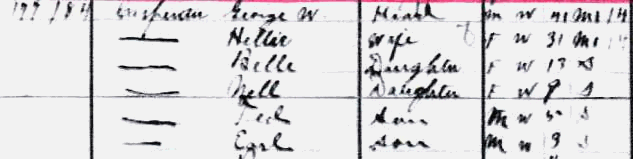 George W. Head M W M1 14
Hettie Wife F W 31 M1 14
Belle Daughter F W 13 S
Nell Daughter F W 9 S
Ted Son M W 5 S
Earl Son M W 3 S